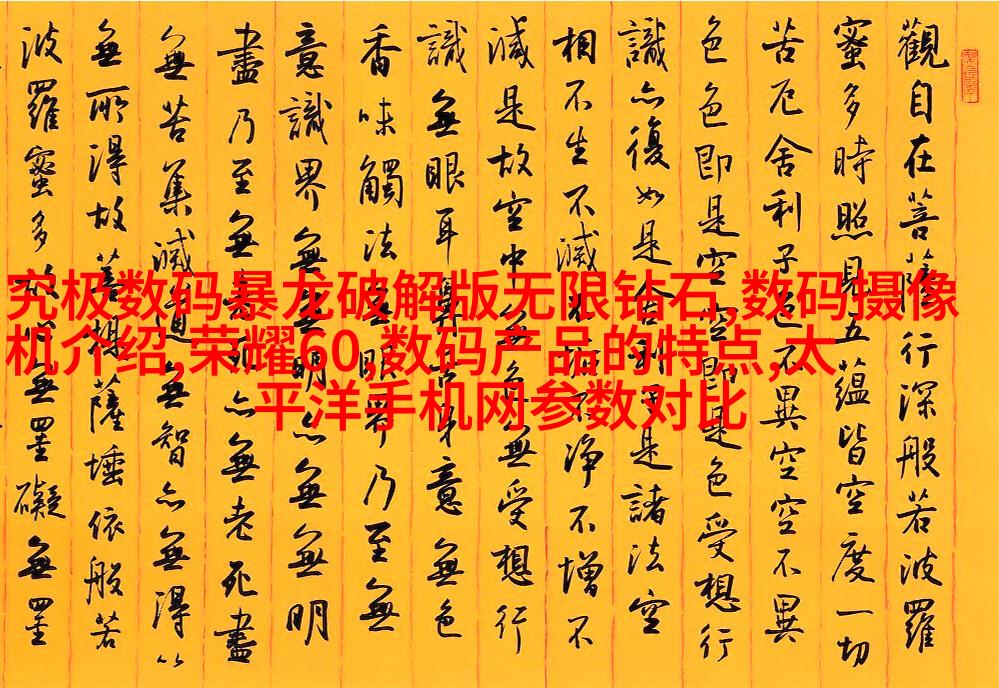 觀自在菩薩行深般若波羅
蜜多時照見五蘊皆空度一切
苦厄舍利子色不異空空不異
色色即是空空即是色受想行
識亦復如是舍利子是諸法空
相不生不滅不垢不淨不增不
減是故空中無色無受想行
識無眼耳鼻舌身意無色
香味觸法無眼界乃至無
意識界無無明亦無無明
盡乃至無老死亦無老死盡
無苦集滅道無智亦無得以
無所得故菩提薩埵依般若
波羅蜜多故心無罣礙無罣
究极数码暴龙破解版无限钻石,数码摄像
机介绍,荣耀60,数码产品的特点,太
平洋手机网参数对比